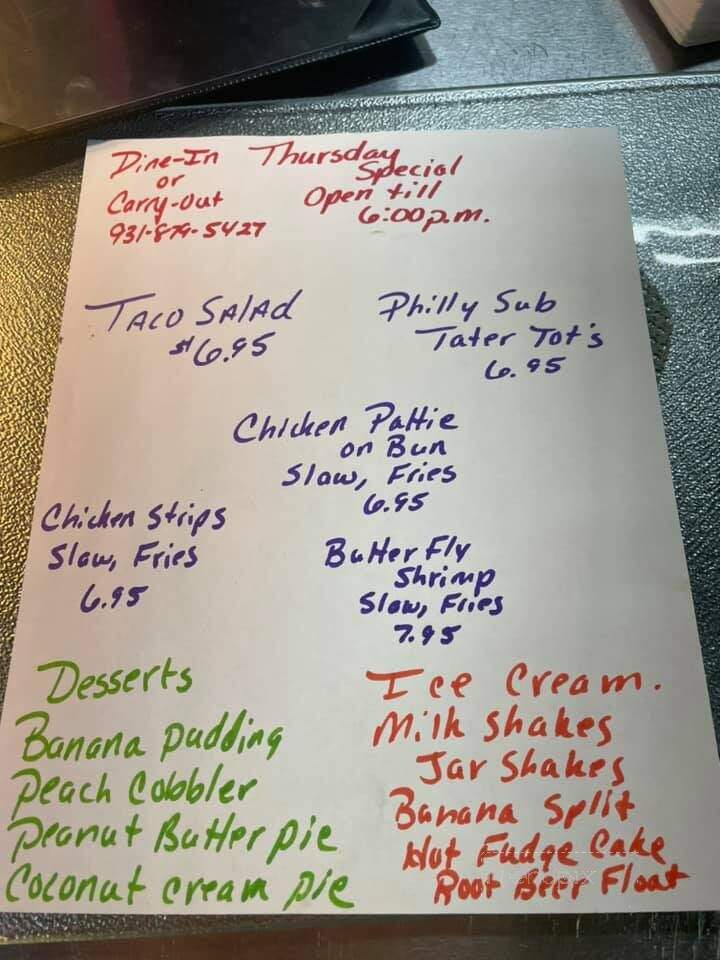 Dine-In
or
Carry-Out
931-879-5427
Thursday
Special
Open till
6:00p.m.
Taco Salad
$6.95
Philly Sub
Tater Tot's
6.95
Chicken Pattie
on Bun
Slaw, Fries
6.95
Chicken Strips
Slaw, Fries
6.95
Butter Fly
Shrimp
Slaw, Fries
7.95
Desserts
Banana pudding
Peach Cobbler
Peanut Butter pie
Coconut cream pie
Ice Cream.
Milk shakes
Jar Shakes
Banana Split
Hot Fudge Cake
Root Beer Float